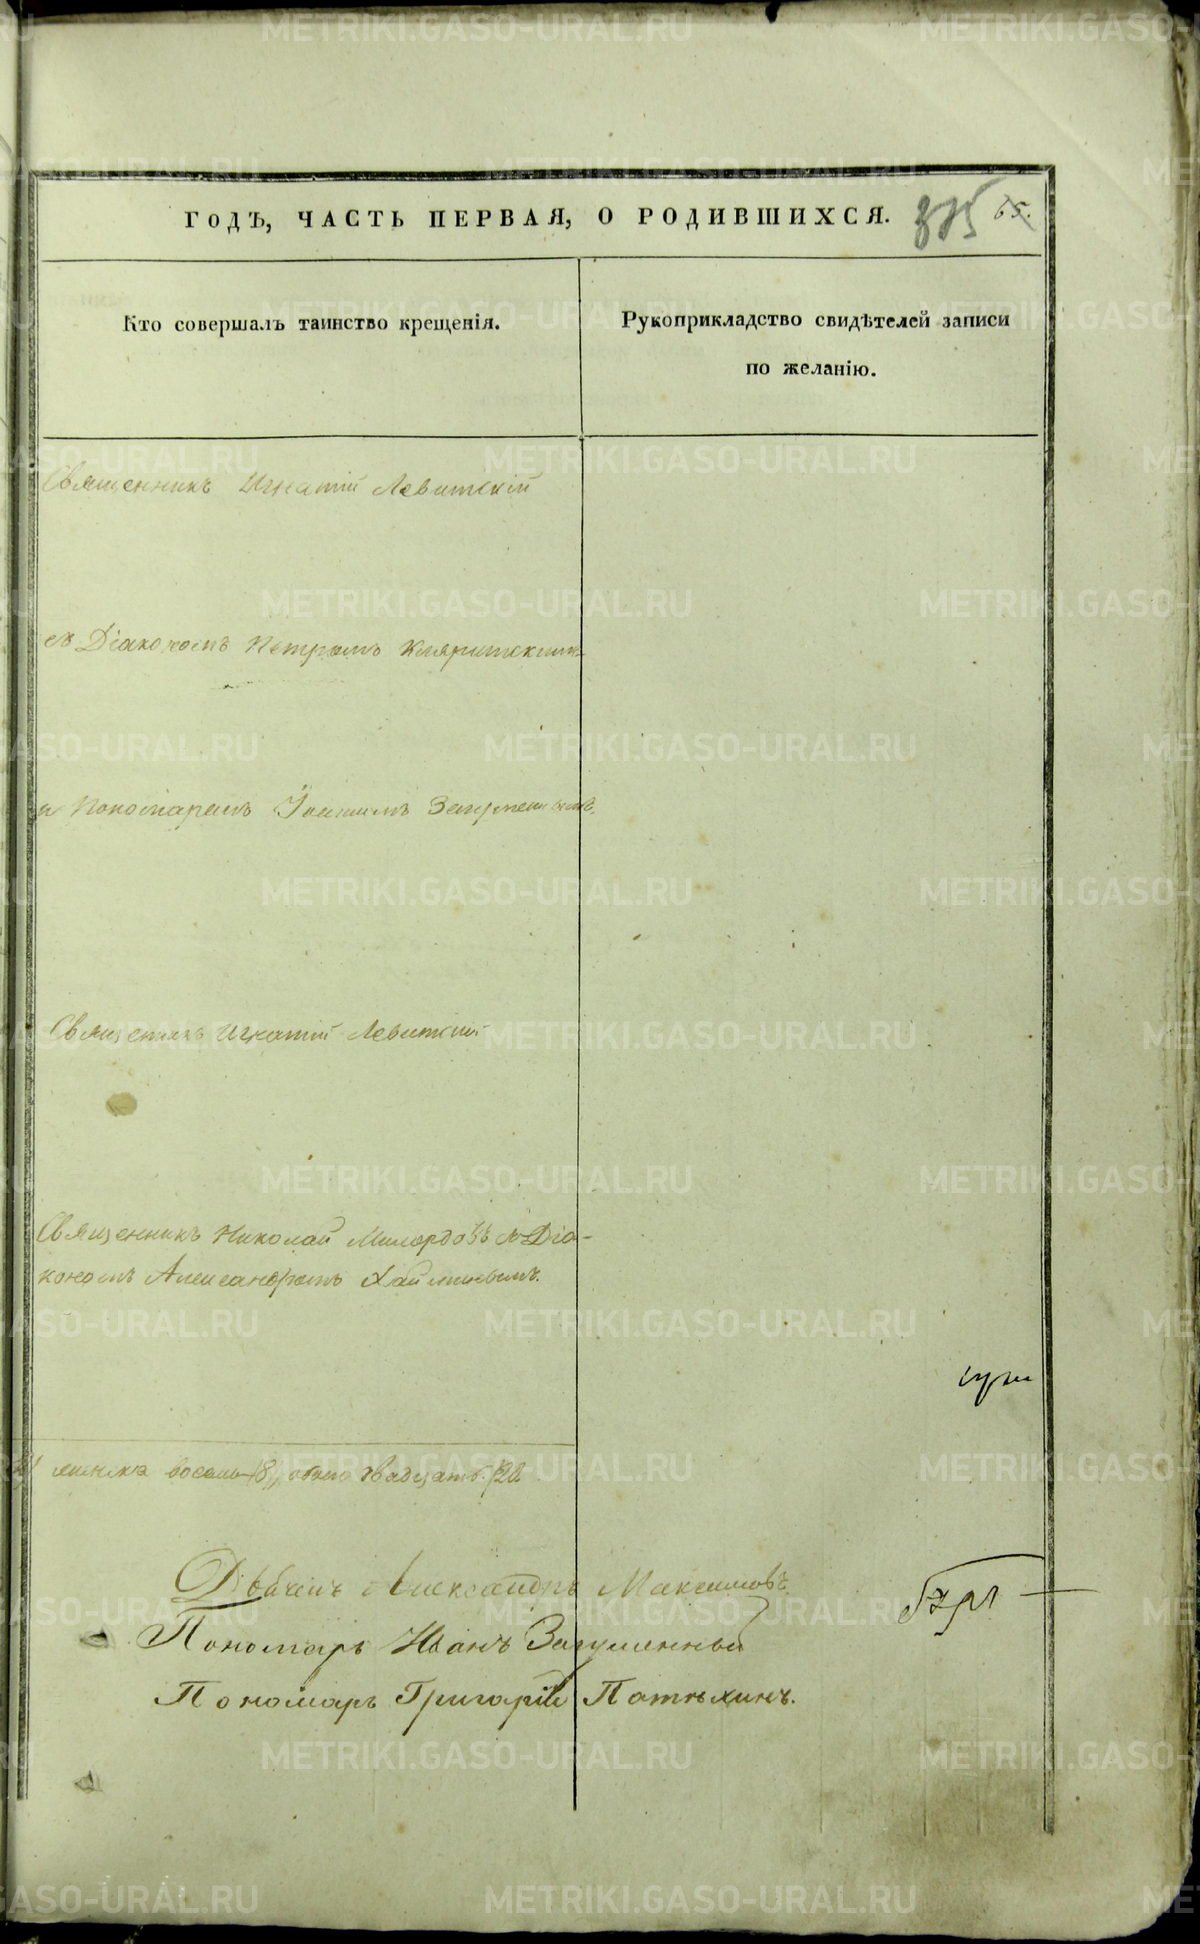 ГОДЪ, ЧАСТЬ ПЕРВАЯ, О РОДИВШИХСЯ. 65.
Кто совершалъ таинство крещенія.
Рукоприкладство свидѣтелей записи
по желанію.
Священникъ Игнатій Левитскій
съ Діакономъ Петромъ
и Пономаремъ Іоанномъ Загуменнымъ.
Священникъ Игнатій Левиткій
Священникъ Николай Милордовъ съ Діа-
кономъ Александромъ
женска восемь (8), обоего двадцать. (20
Александръ Максимовъ
Пономарь Иванъ Загуменный
Пономарь Григорій Потѣхинъ.
METRIKI.GASO-URAL.RU